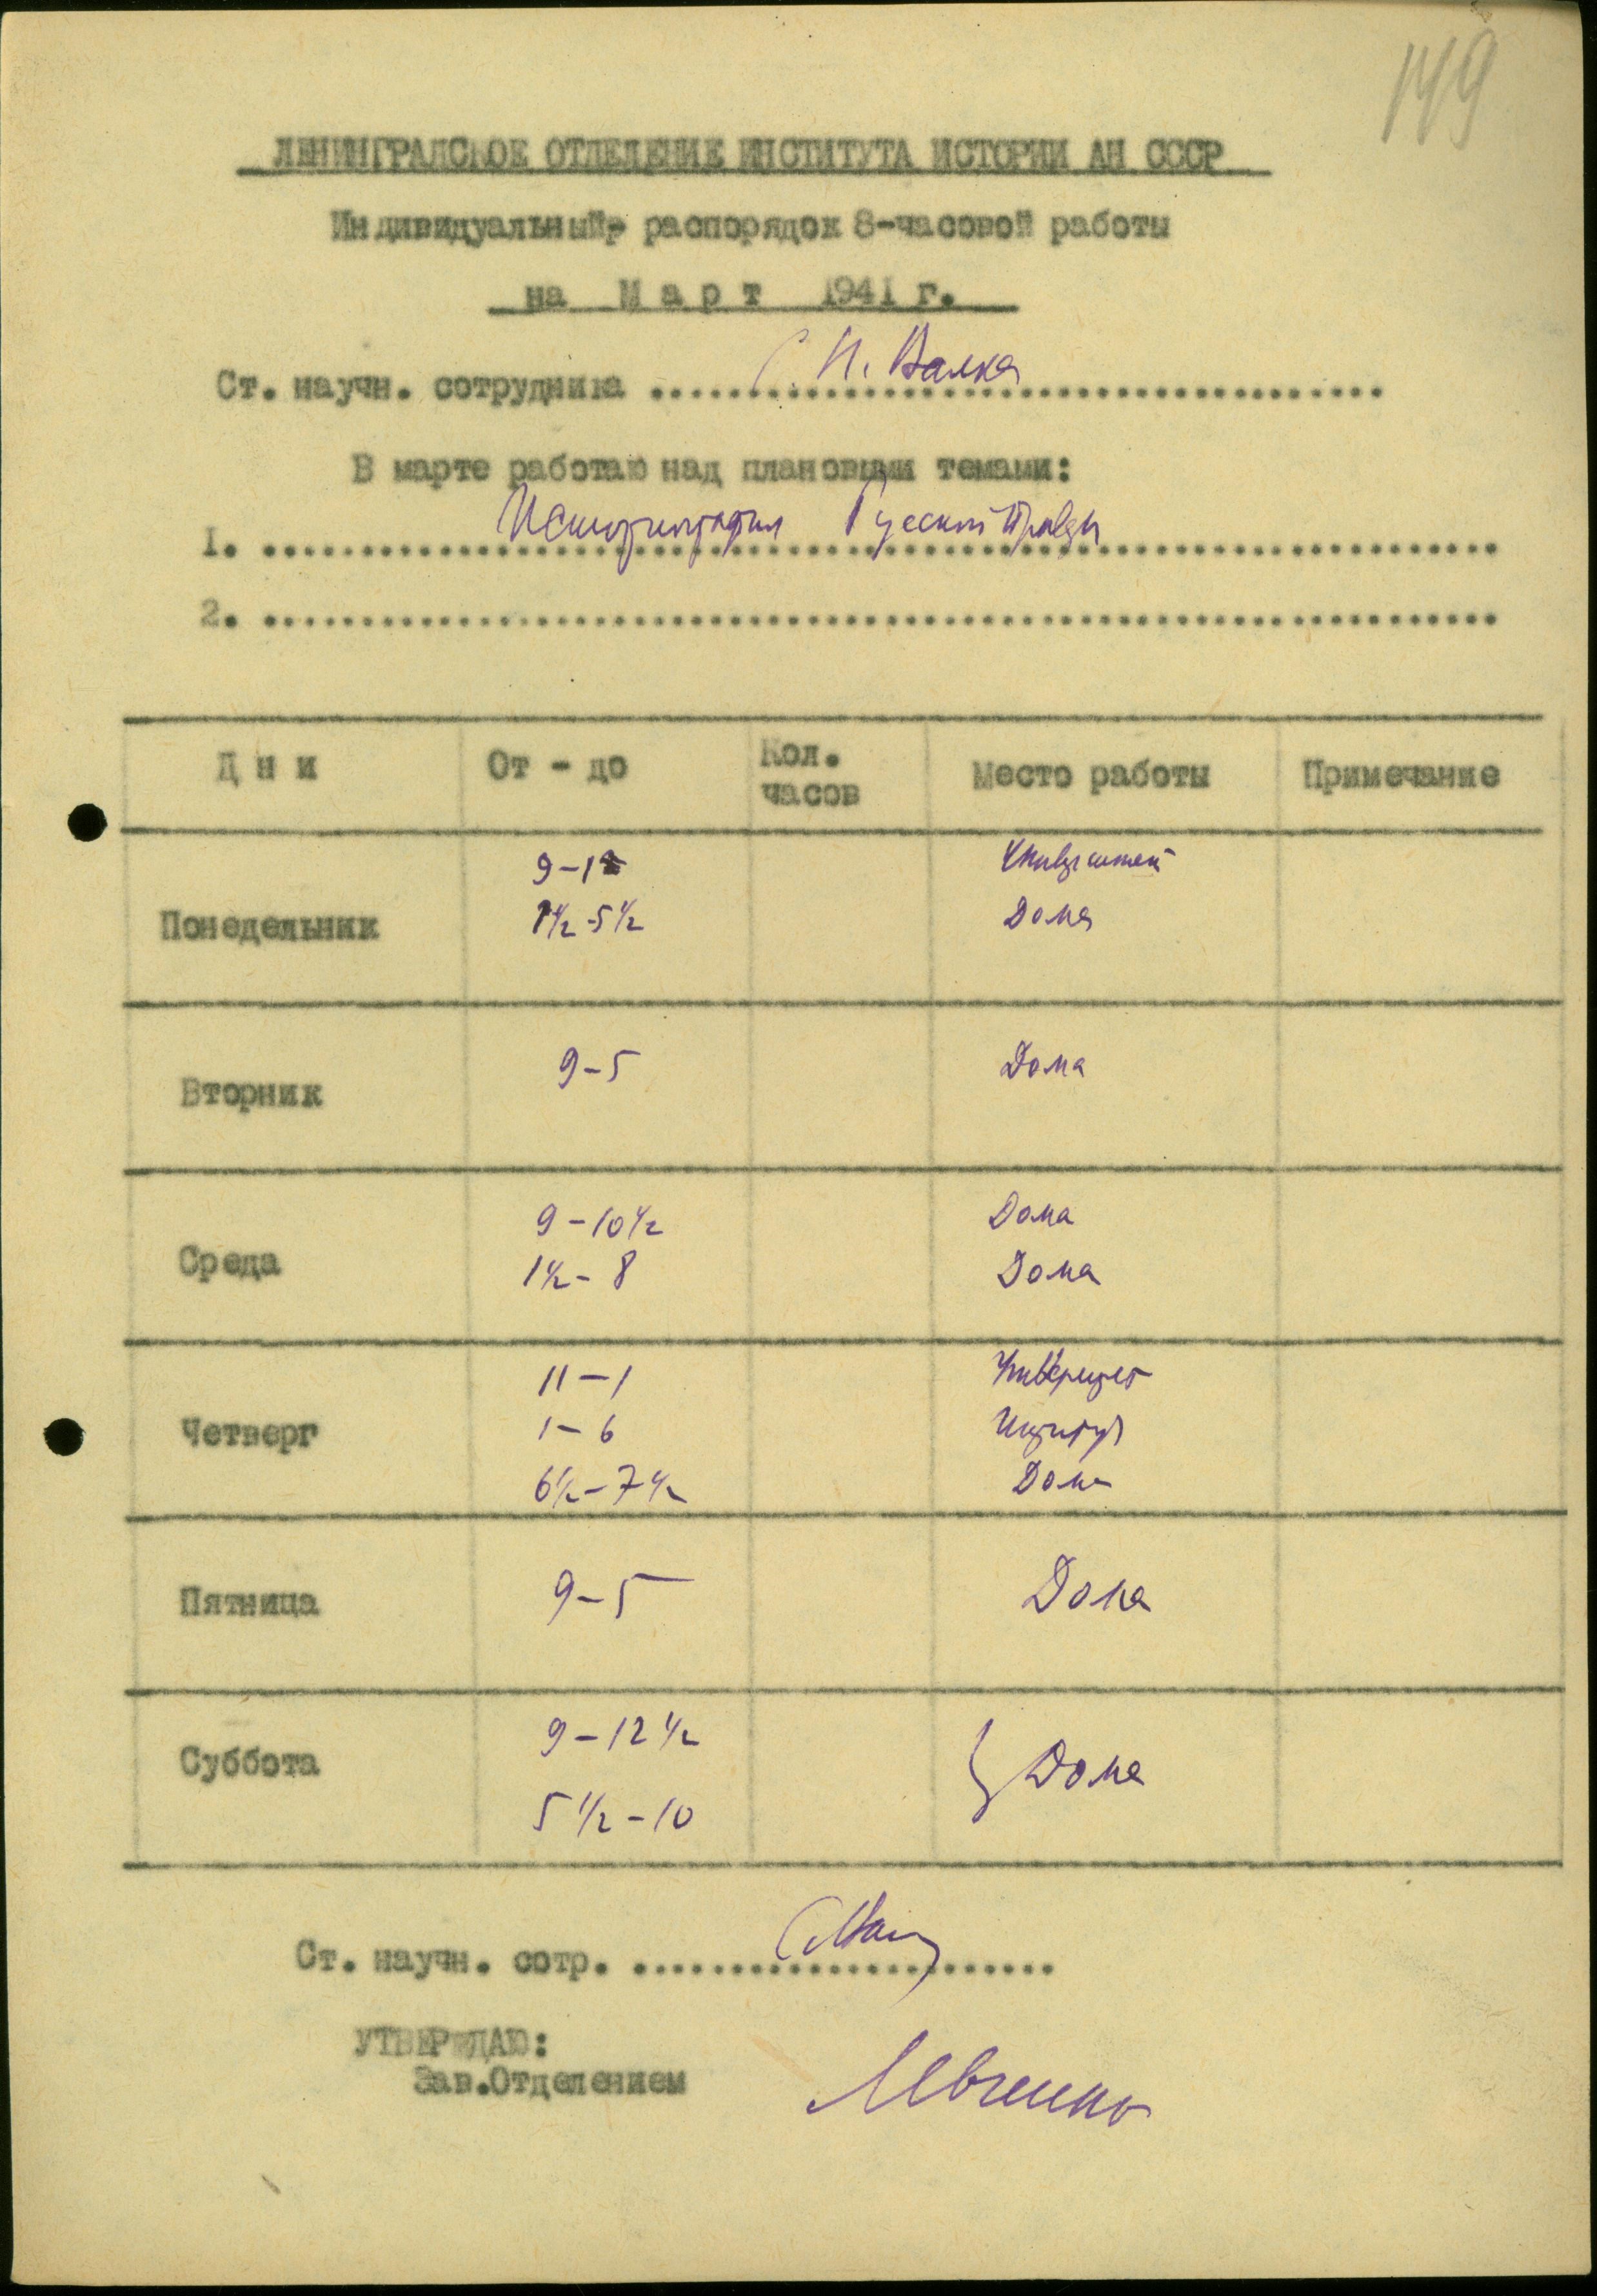 149
ЛЕНИНГРАДСКОЕ ОТДЕЛЕНИЕ ИНСТИТУТА ИСТОРИИ АН СССР
Индивидуальный распорядок 8-часовой работы
на Март 1941 г.
Ст. научн. сотрудника ..... С. Н. Валка .....
В марте работаю над плановыми темами:
1. ..... Историография Русской Правды .....
2. .....
Дни От - до Кол. часов Место работы Примечание
Понедельник
9-12 Университет
1½-5½ Дома
Вторник 9-5 Дома
Среда
9-10½ Дома
1½-8 Дома
Четверг
11-1 Университет
1-6 Институт
6½-7½ Дома
Пятница 9-5 Дома
Суббота
9-12½
5½-10
} Дома
Ст. научн. сотр. .....
УТВЕРЖДАЮ:
Зав.Отделением Левченко